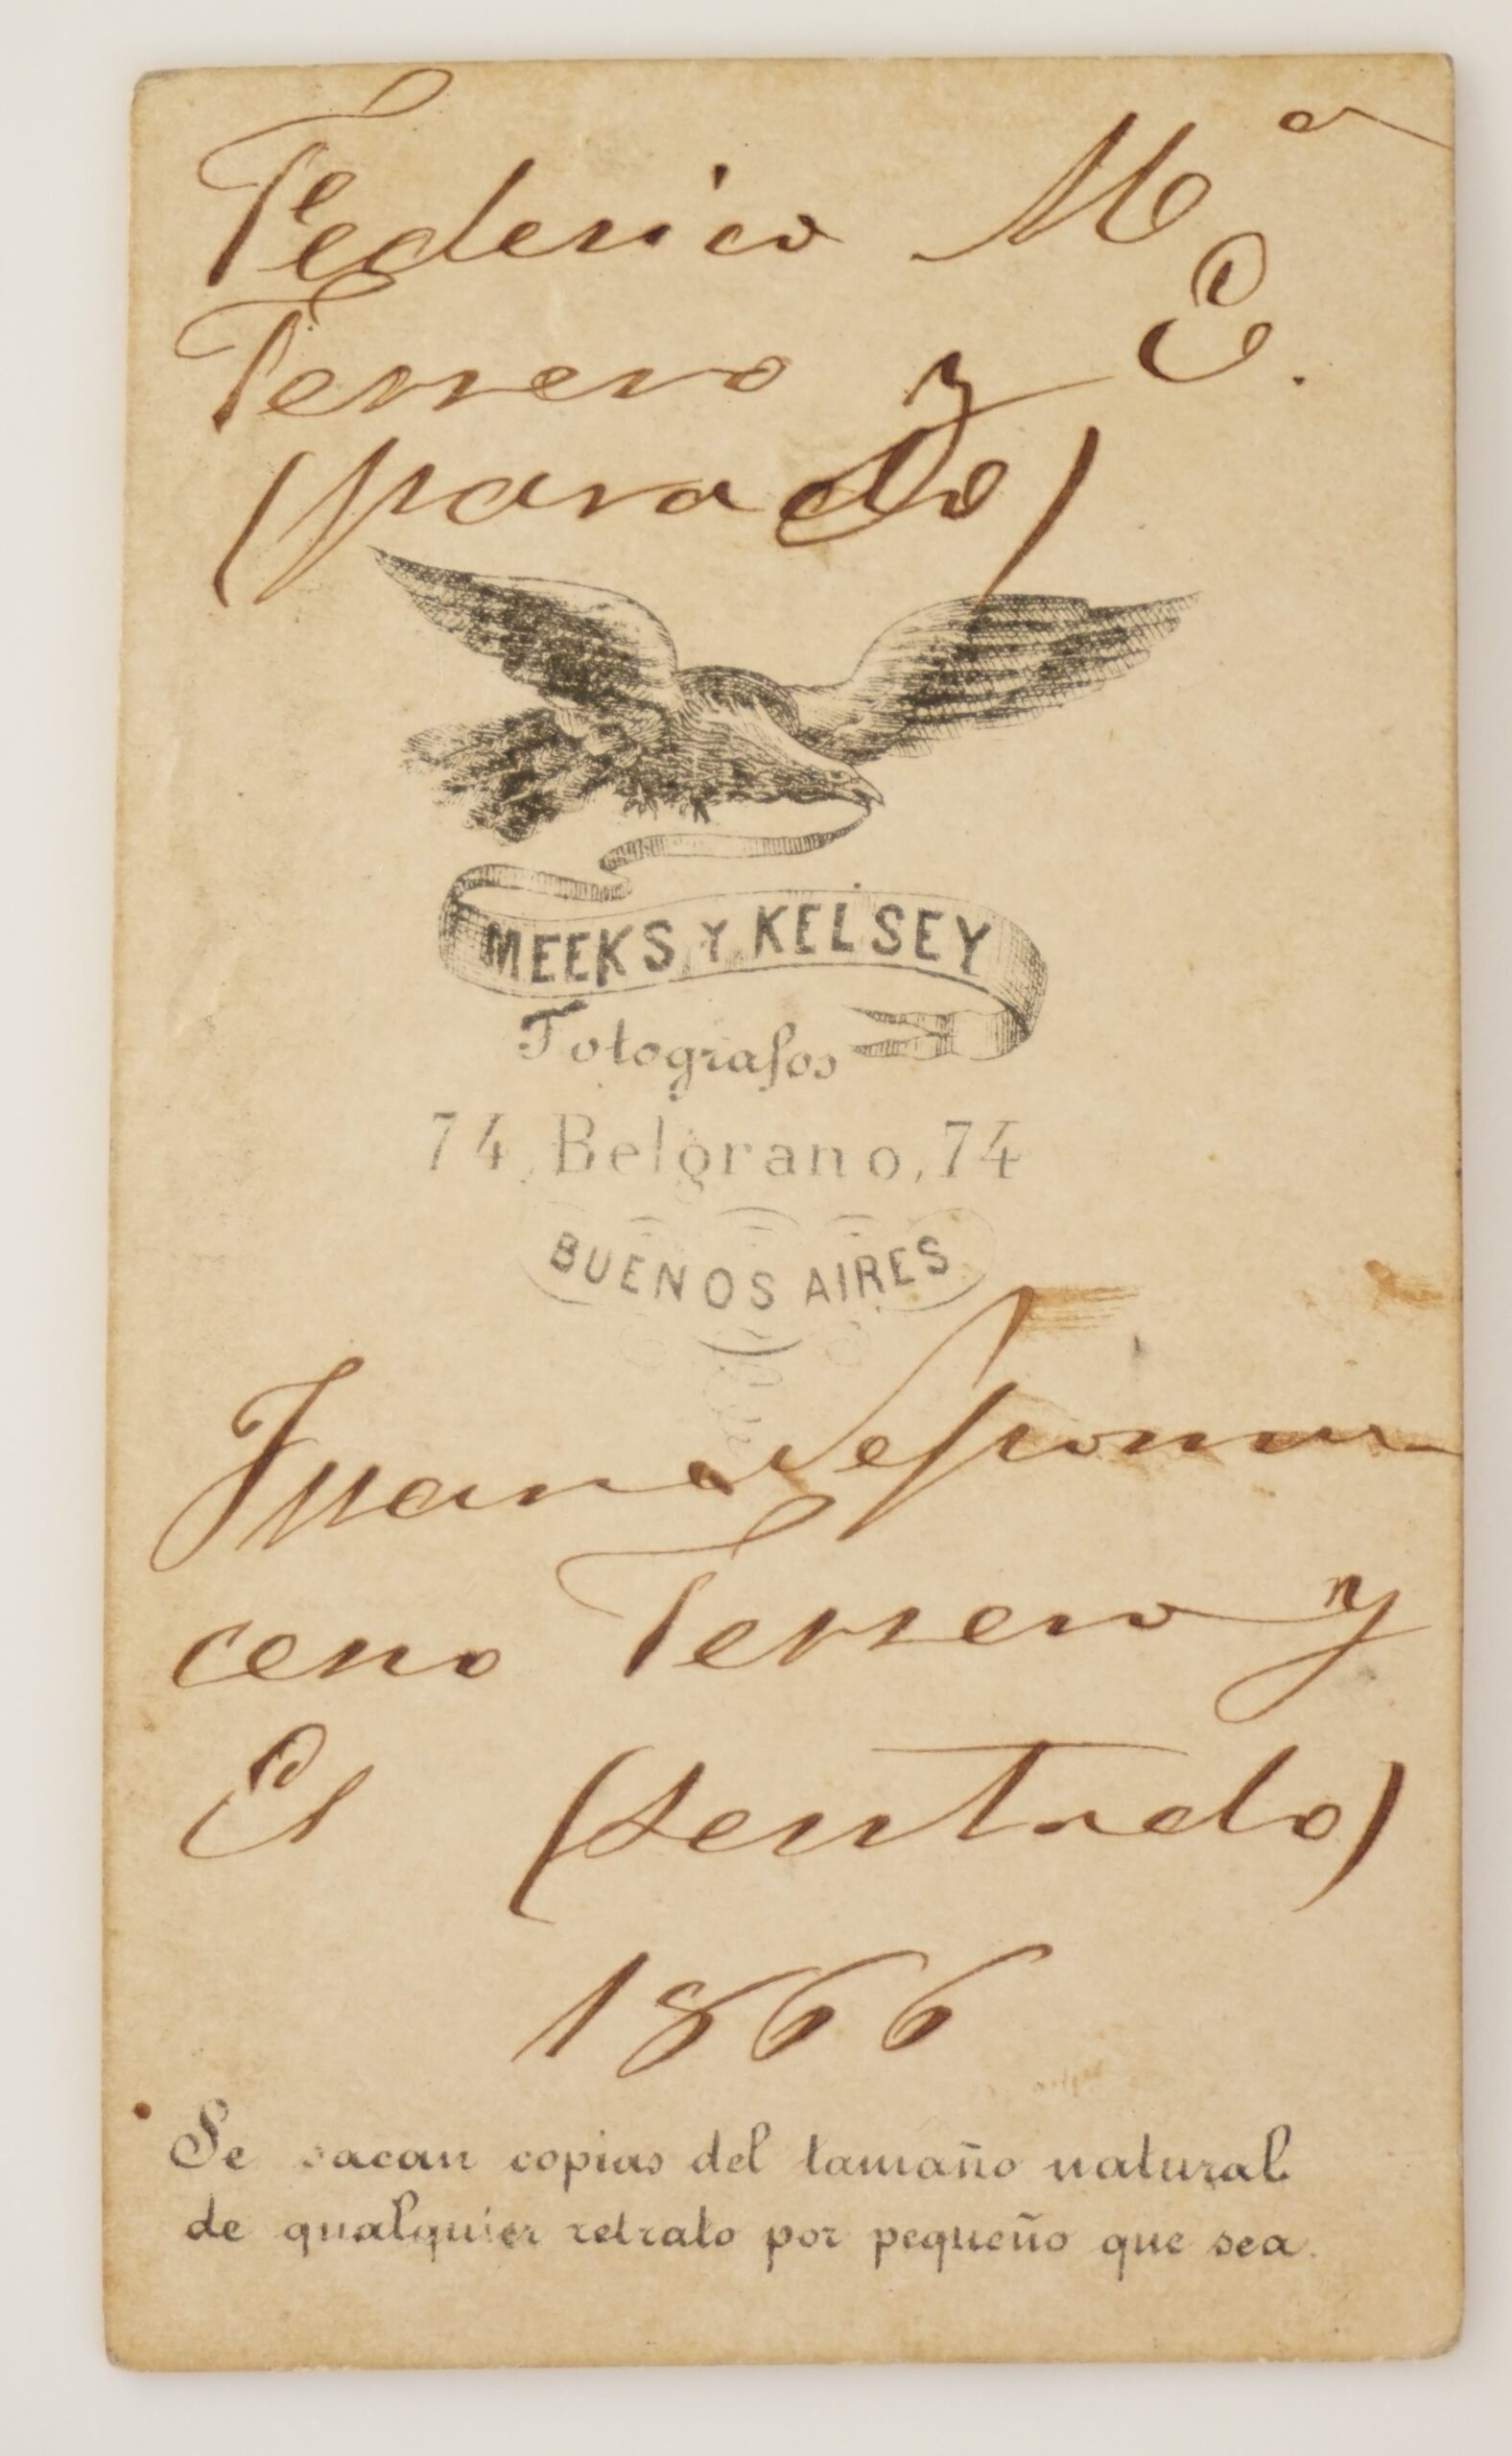 Federico Mª
Terrero y E.
(parado)
MEEKS Y KELSEY
Fotografos
74, Belgrano, 74
BUENOS AIRES
Juan Nepomu
ceno Terrero y
Es (sentado)
1866
Se sacan copias del tamaño natural
de qualquier retrato por pequeño que sea.